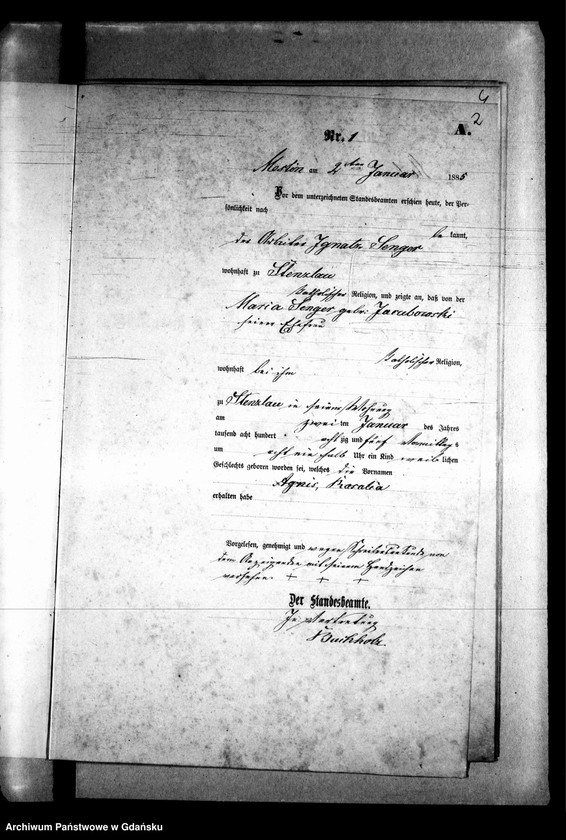 4
2
A.
Nr. 1
Mestin am 2ten Januar 1885
Vor dem unterzeichneten Standesbeamten erschien heute, der Per-
sönlichkeit nach
be kannt,
der Arbeiter Ignatz Senger
wohnhaft zu Stenzlau
katholischer Religion, und zeigte an, daß von der
Maria Senger geb: Jacubowski
seiner Ehefrau
katholischer Religion,
wohnhaft bei ihm
zu Stenzlau in seiner Wohnung
am zwei ten Januar des Jahres
tausend acht hundert acht zig und fünf Vormittags
um acht ein halb Uhr ein Kind weib lichen
Geschlechts geboren worden sei, welches die Vornamen
Agnes, Rosalia
erhalten habe
Vorgelesen, genehmigt und wegen Schreibensunkunde von
dem Anzeigenden mit seinem Handzeichen
versehen. + + +
Der Standesbeamte.
In Vertretung
Buchholz
Archiwum Państwowe w Gdańsku